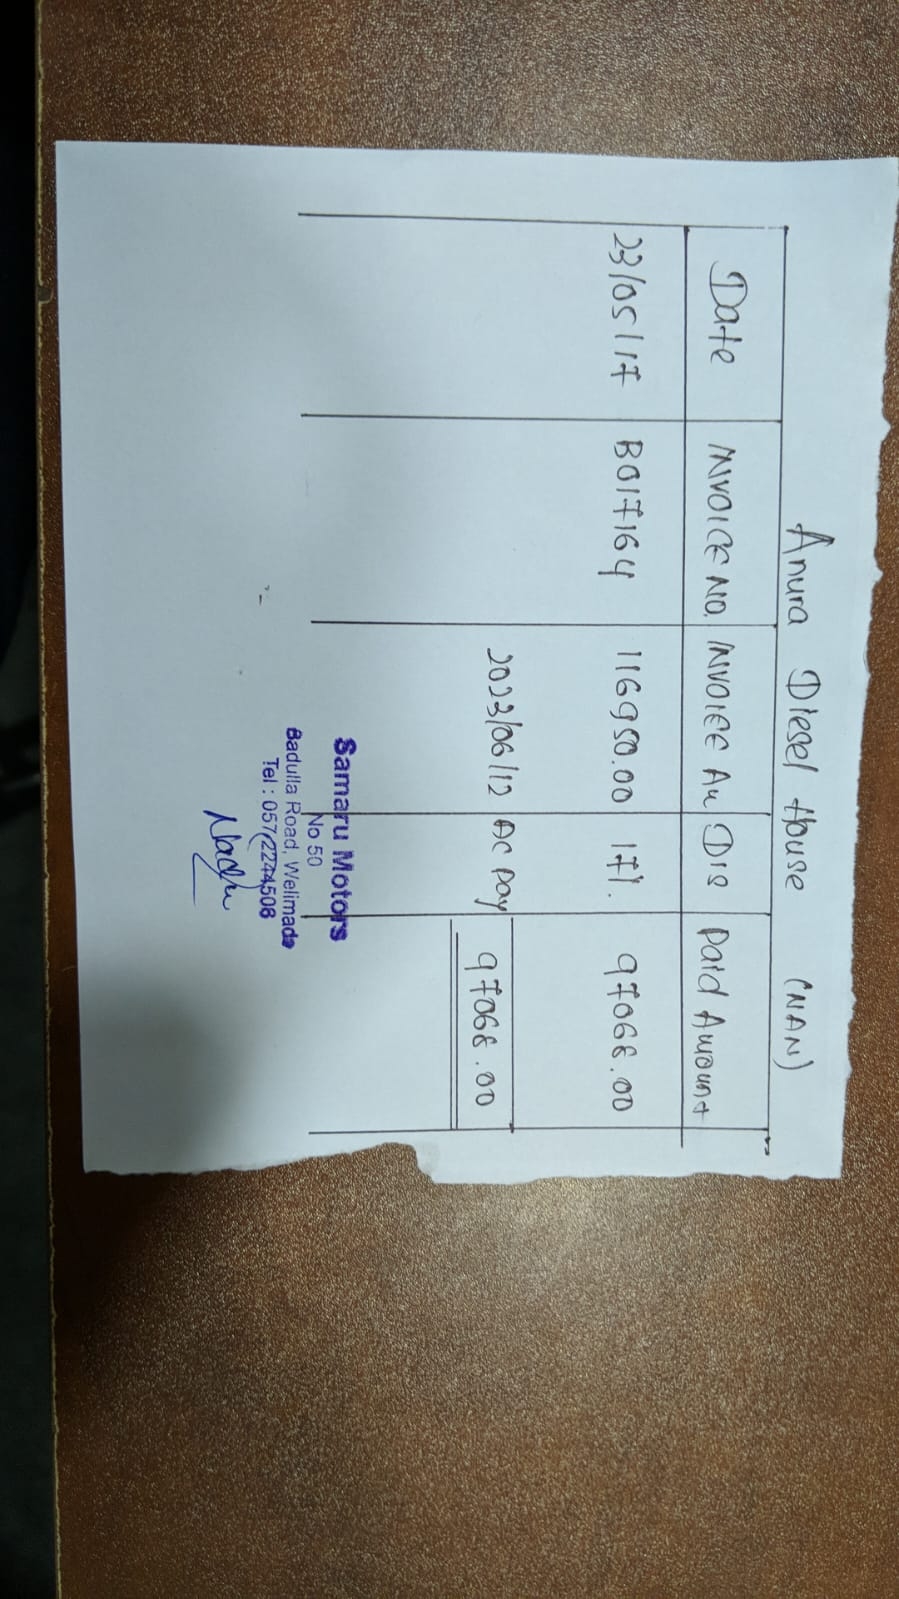 Anura Diesel House (NAN)
Date INVOICE NO. INVOICE Au Dis Paid Amount
23/05/17 B017164 116950.00 17%. 97068.00
2023/06/12 AC Pay 97068.00
Samaru Motors
No 50
Badulla Road, Welimada
Tel : 057/2244508